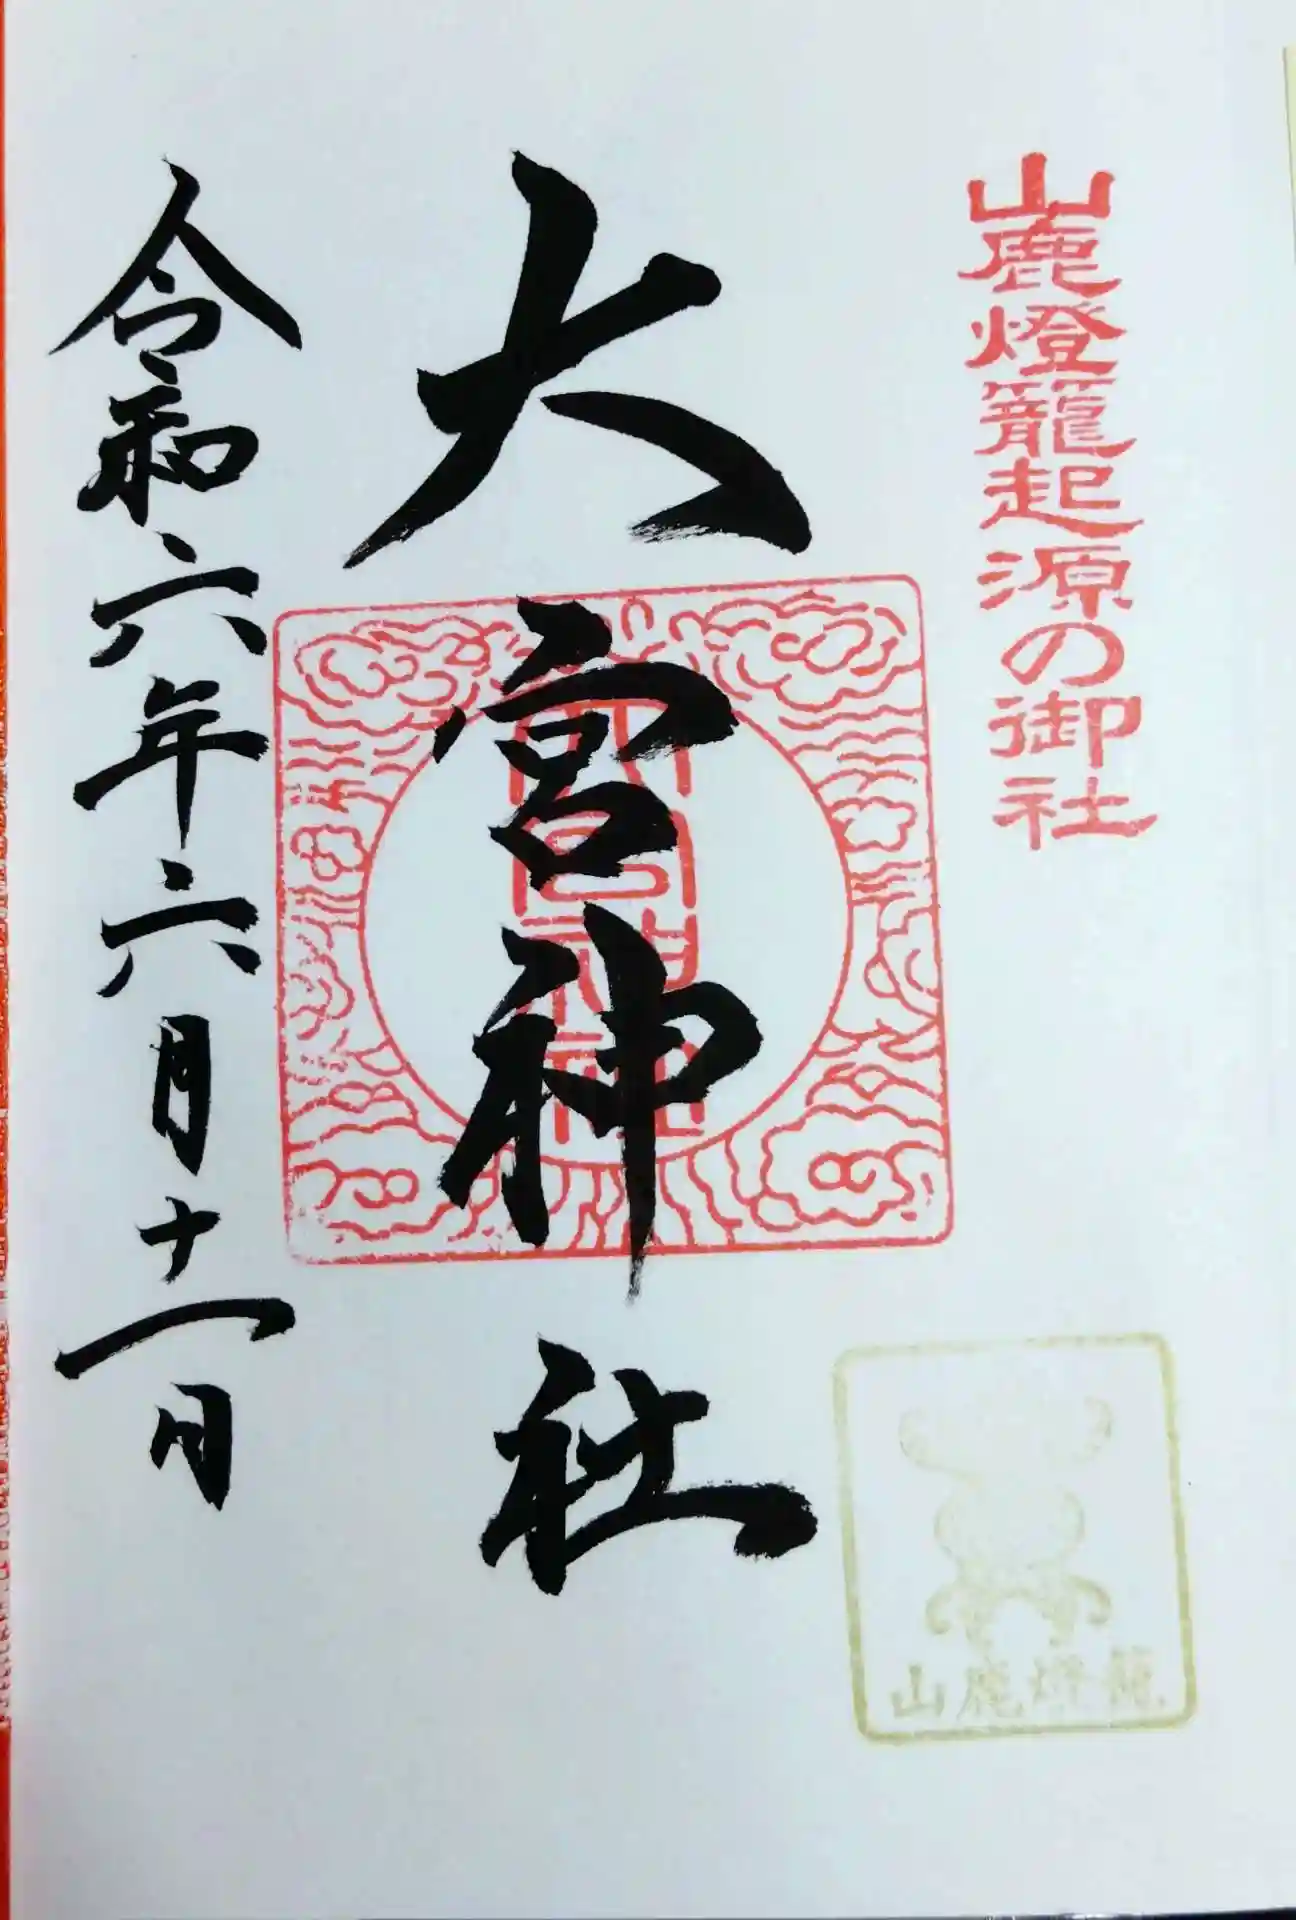 山鹿燈籠起源の御社
大宮神社
令和六年六月十一日
山鹿燈籠